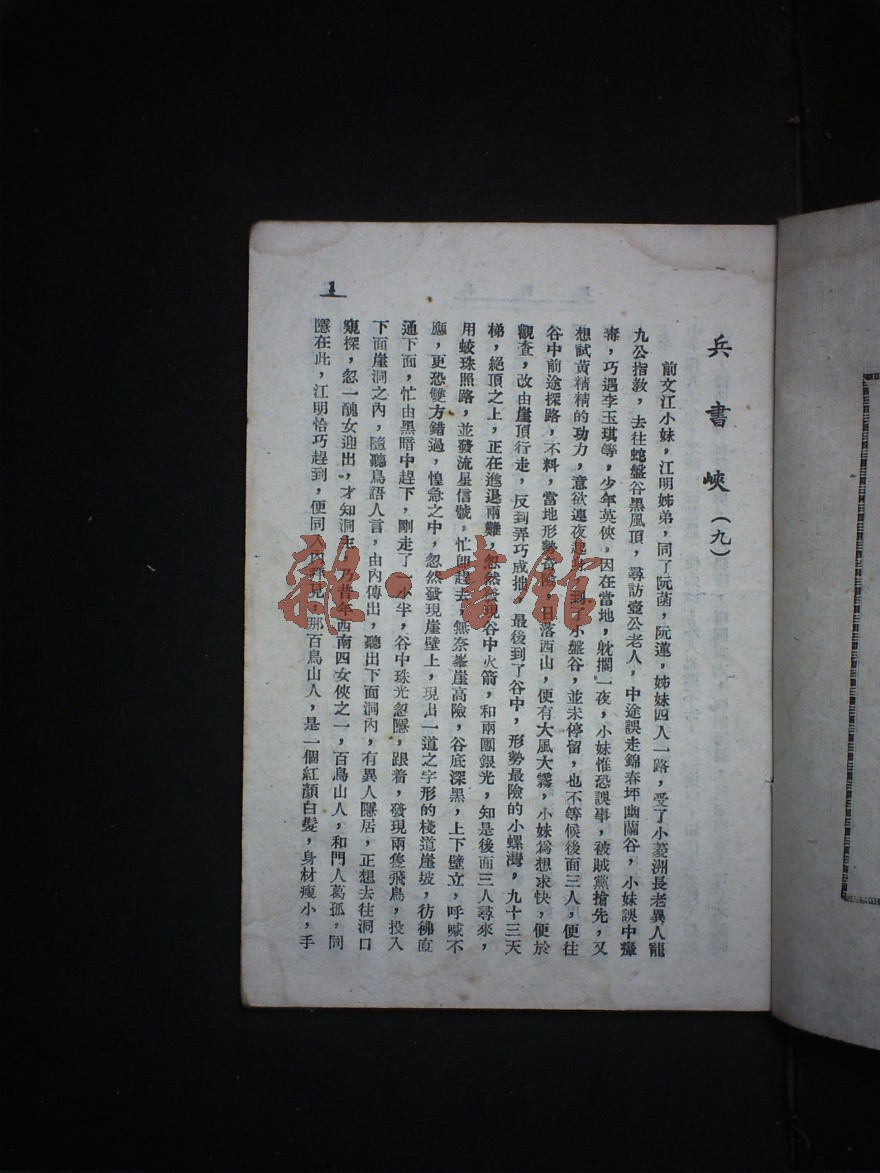 兵書峽（九）
前文江小妹，江明姊弟，同了阮菡，阮蓮，姊妹四人一路，受了小菱洲長老異人龍
九公指敎，去往蛇盤谷黑風頂，尋訪壺公老人，中途誤走錦春坪幽蘭谷，小妹誤中瘴
毒，巧遇李玉琪等，少年英俠，因在當地，躭擱一夜，小妹惟恐誤事，被賊黨搶先，又
想試黃精精的功力，意欲連夜起身，到了小盤谷，並未停留，也不等候後面三人，便往
谷中前途探路，不料，當地形勢奇險，日落西山，便有大風大霧，小妹爲想求快，便於
觀查，改由崖頂行走，反到弄巧成拙，最後到了谷中，形勢最險的小螺灣，九十三天
梯，絕頂之上，正在進退兩難，忽然發現谷中火箭，和兩團銀光，知是後面三人尋來，
用蛟珠照路，並發流星信號，忙卽趕去，無奈峯崖高險，谷底深黑，上下壁立，呼喊不
應，更恐雙方錯過，惶急之中，忽然發現崖壁上，現出一道之字形的棧道崖坡，彷彿直
通下面，忙由黑暗中趕下，剛走了一小半，谷中珠光忽隱，跟着，發現兩隻飛鳥，投入
下面崖洞之內，隨聽鳥語人言，由內傳出，聽出下面洞內，有異人隱居，正想去往洞口
窺探，忽一醜女迎出，才知洞主，乃昔年西南四女俠之一，百鳥山人，和門人葛孤，同
隱在此，江明恰巧趕到，便同入內拜見，那百鳥山人，是一個紅顏白髮，身材瘦小，手
1
雜·書館